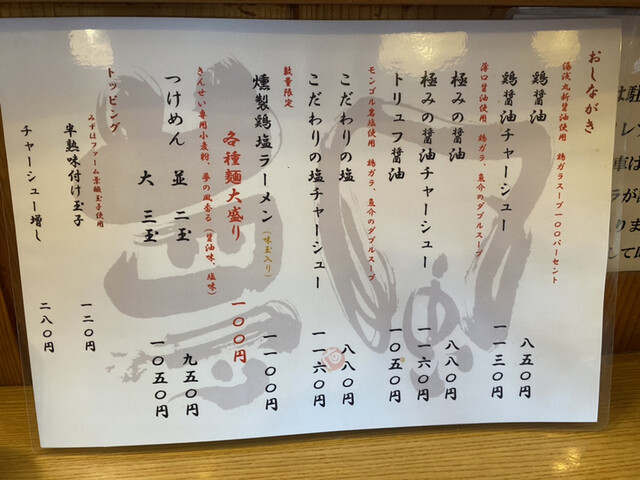 おしながき
湯浅丸新醤油使用　鶏ガラスープ一〇〇パーセント
鶏醤油　八五〇円
鶏醤油チャーシュー　一一三〇円
薄口醤油使用　鶏ガラ、魚介のダブルスープ
極みの醤油　八八〇円
極みの醤油チャーシュー　一一六〇円
トリュフ醤油　一〇五〇円
モンゴル岩塩使用　鶏ガラ、魚介のダブルスープ
こだわりの塩　八八〇円
こだわりの塩チャーシュー　一一六〇円
数量限定
燻製鶏塩ラーメン（味玉入り）　一一〇〇円
各種麺大盛り　一〇〇円
きんせい専用小麦粉、夢の風香る（醤油味、塩味）
つけめん　並　二玉　九五〇円
大　三玉　一〇五〇円
トッピング
みずほファーム
玉子使用
半熟味付け玉子　一二〇円
チャーシュー増し　二八〇円